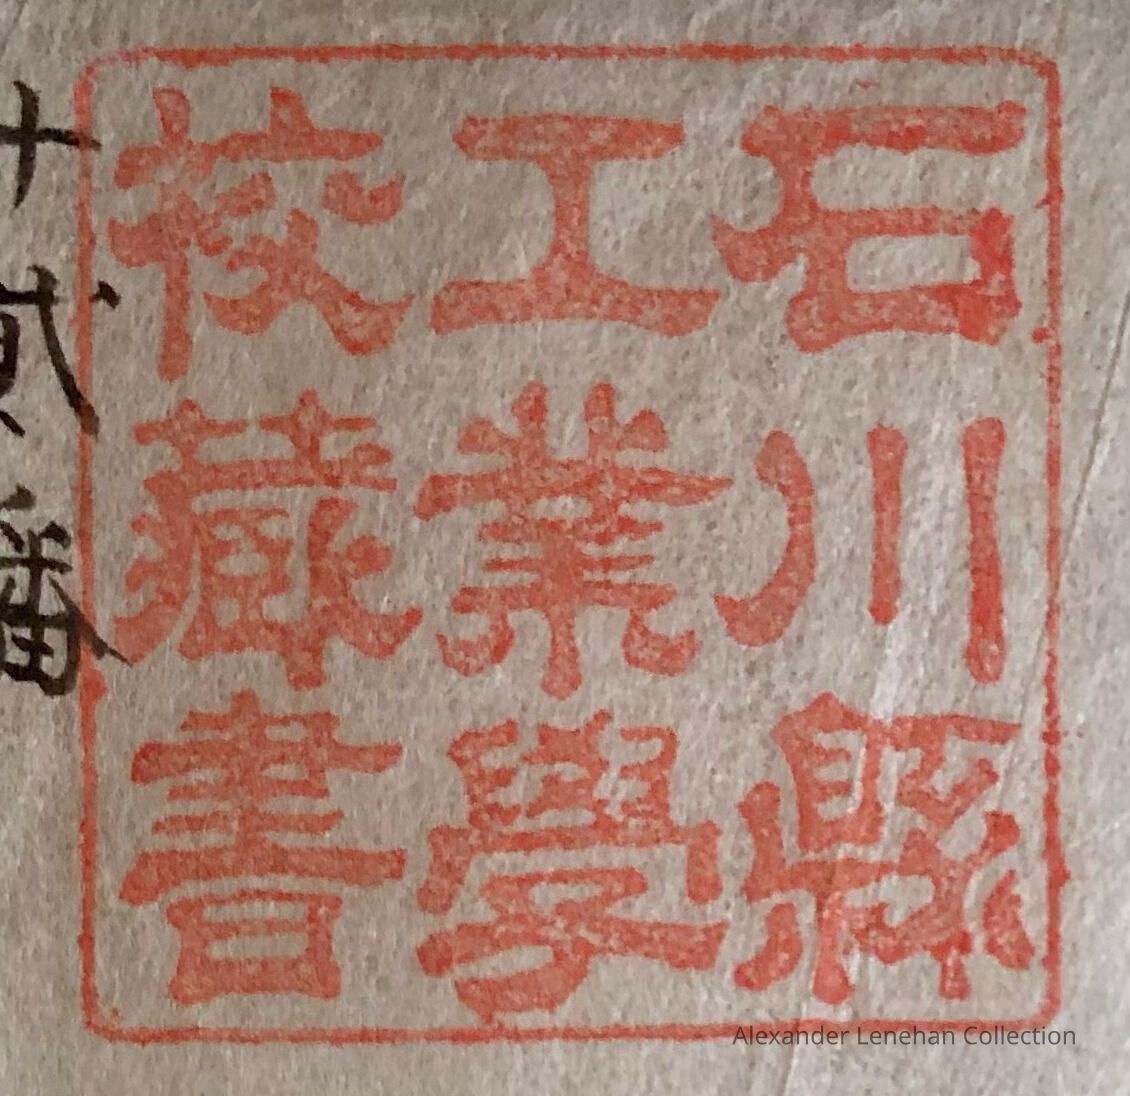 石川縣
工業學
校藏書
十貳番
Alexander Lenehan Collection